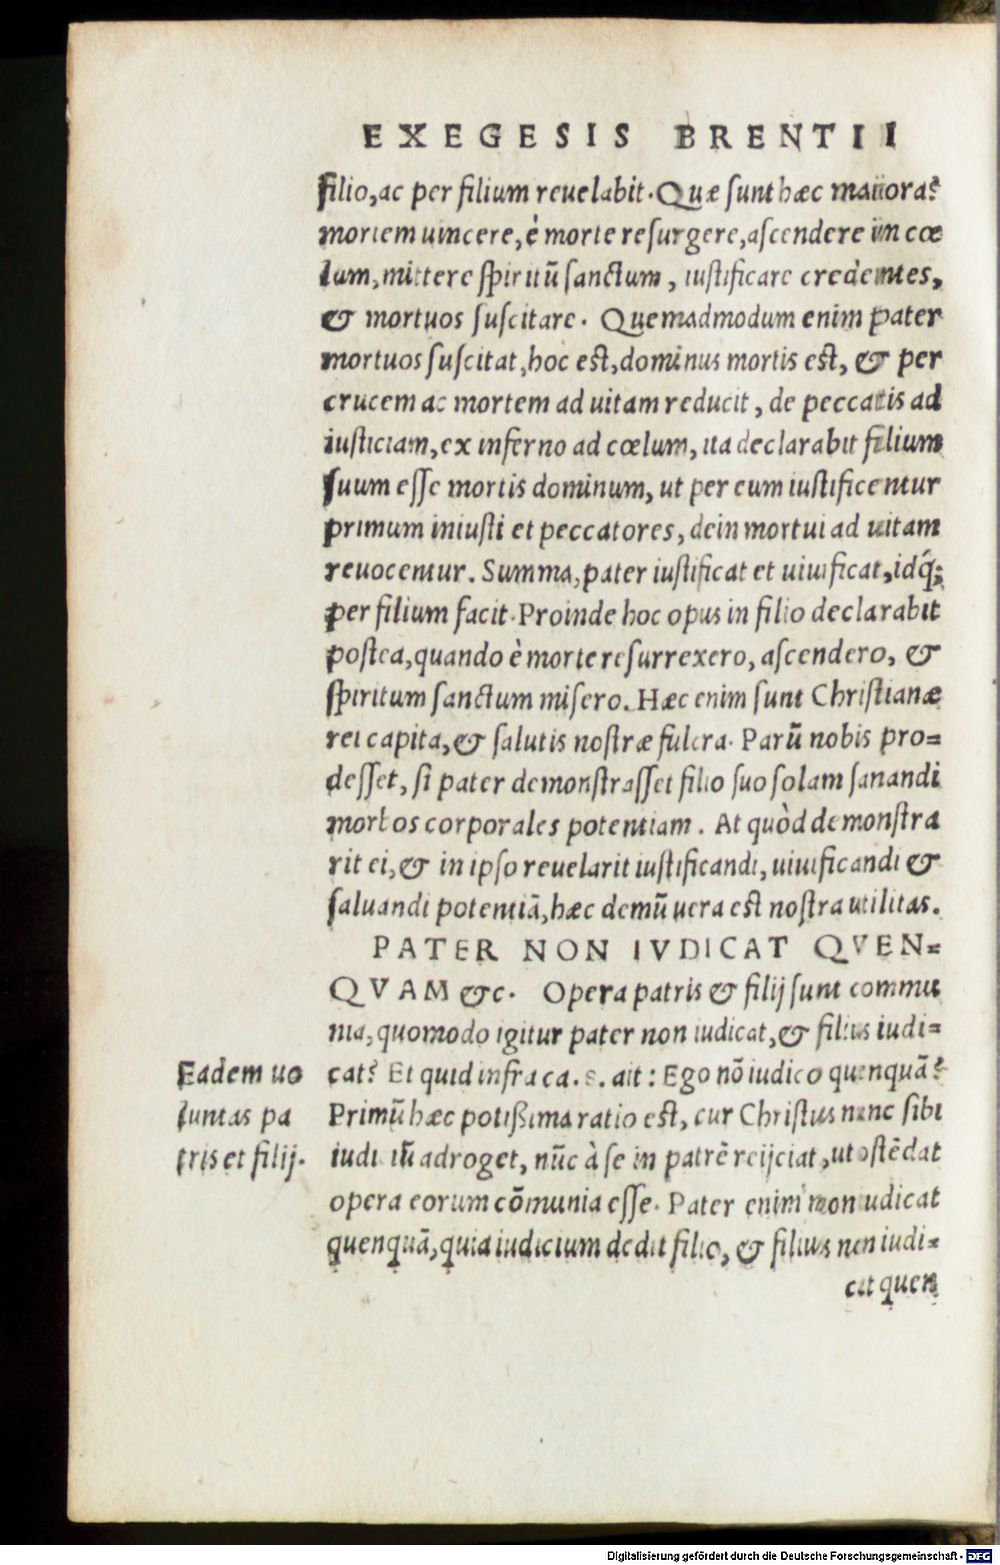 EXEGESIS BRENTII
filio, ac per filium reuelabit. Quæ sunt hæc maiora?
mortem uincere, è morte resurgere, ascendere in cœ
lum, mittere spiritū sanctum, iustificare credentes,
& mortuos suscitare. Quemadmodum enim pater
mortuos suscitat, hoc est, dominus mortis est, & per
crucem ac mortem ad uitam reducit, de peccatis ad
iusticiam, ex inferno ad cœlum, ita declarabit filium
suum esse mortis dominum, ut per eum iustificentur
primum iniusti et peccatores, dein mortui ad uitam
reuocentur. Summa, pater iustificat et uiuificat, idq́;
per filium facit. Proinde hoc opus in filio declarabit
postea, quando è morte resurrexero, ascendero, &
spiritum sanctum misero. Hæc enim sunt Christianæ
rei capita, & salutis nostræ fulcra. Parū nobis pro=
desset, si pater demonstrasset filio suo solam sanandi
morbos corporales potentiam. At quòd demonstra
rit ei, & in ipso reuelarit iustificandi, uiuificandi &
saluandi potentiā, hæc demū uera est nostra utilitas.
PATER NON IVDICAT QVEN=
QVAM &c. Opera patris & filij sunt commu
nia, quomodo igitur pater non iudicat, & filius iudi=
cat? Et quid infra ca. 8. ait: Ego nō iudico quenquā?
Primū hæc potißima ratio est, cur Christus nunc sibi
iudiciū adroget, nūc à se in patrē reijciat, ut ostēdat
opera eorum cōmunia esse. Pater enim non iudicat
quenquā, quia iudicium dedit filio, & filius non iudi=
cat quen
Eadem uo
luntas pa
tris et filij.
Digitalisierung gefördert durch die Deutsche Forschungsgemeinschaft - DFG